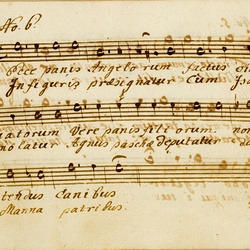 No. 6.
Ecce panis Angelorum factus ci
In figuris præsignatur Cum Isa
iatorum Vere panis filiorum no
molatur Agnus paschæ deputatur da
tendus Canibus
Manna patribus.